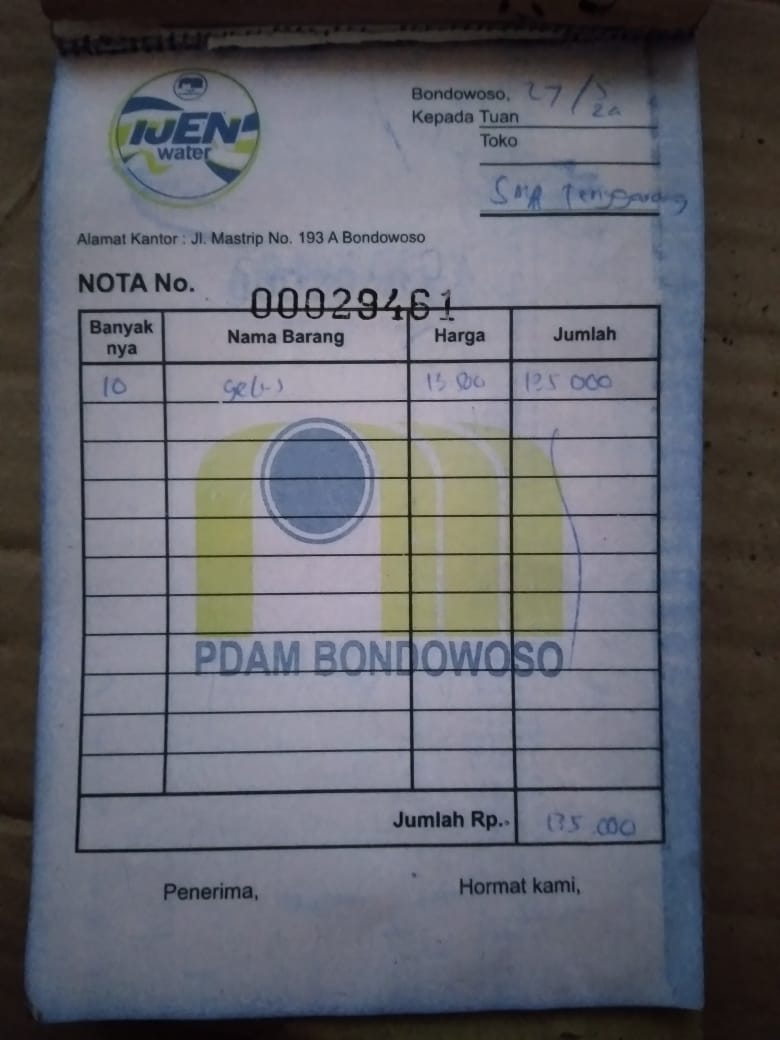 IJEN
water
Bondowoso, 27/
Kepada Tuan
Toko
SMA Tenggarang
Alamat Kantor : Jl. Mastrip No. 193 A Bondowoso
NOTA No. 00029461
Banyak nya Nama Barang Harga Jumlah
10 gelas 13 500 135 000
PDAM BONDOWOSO
Jumlah Rp. 135.000
Penerima, Hormat kami,